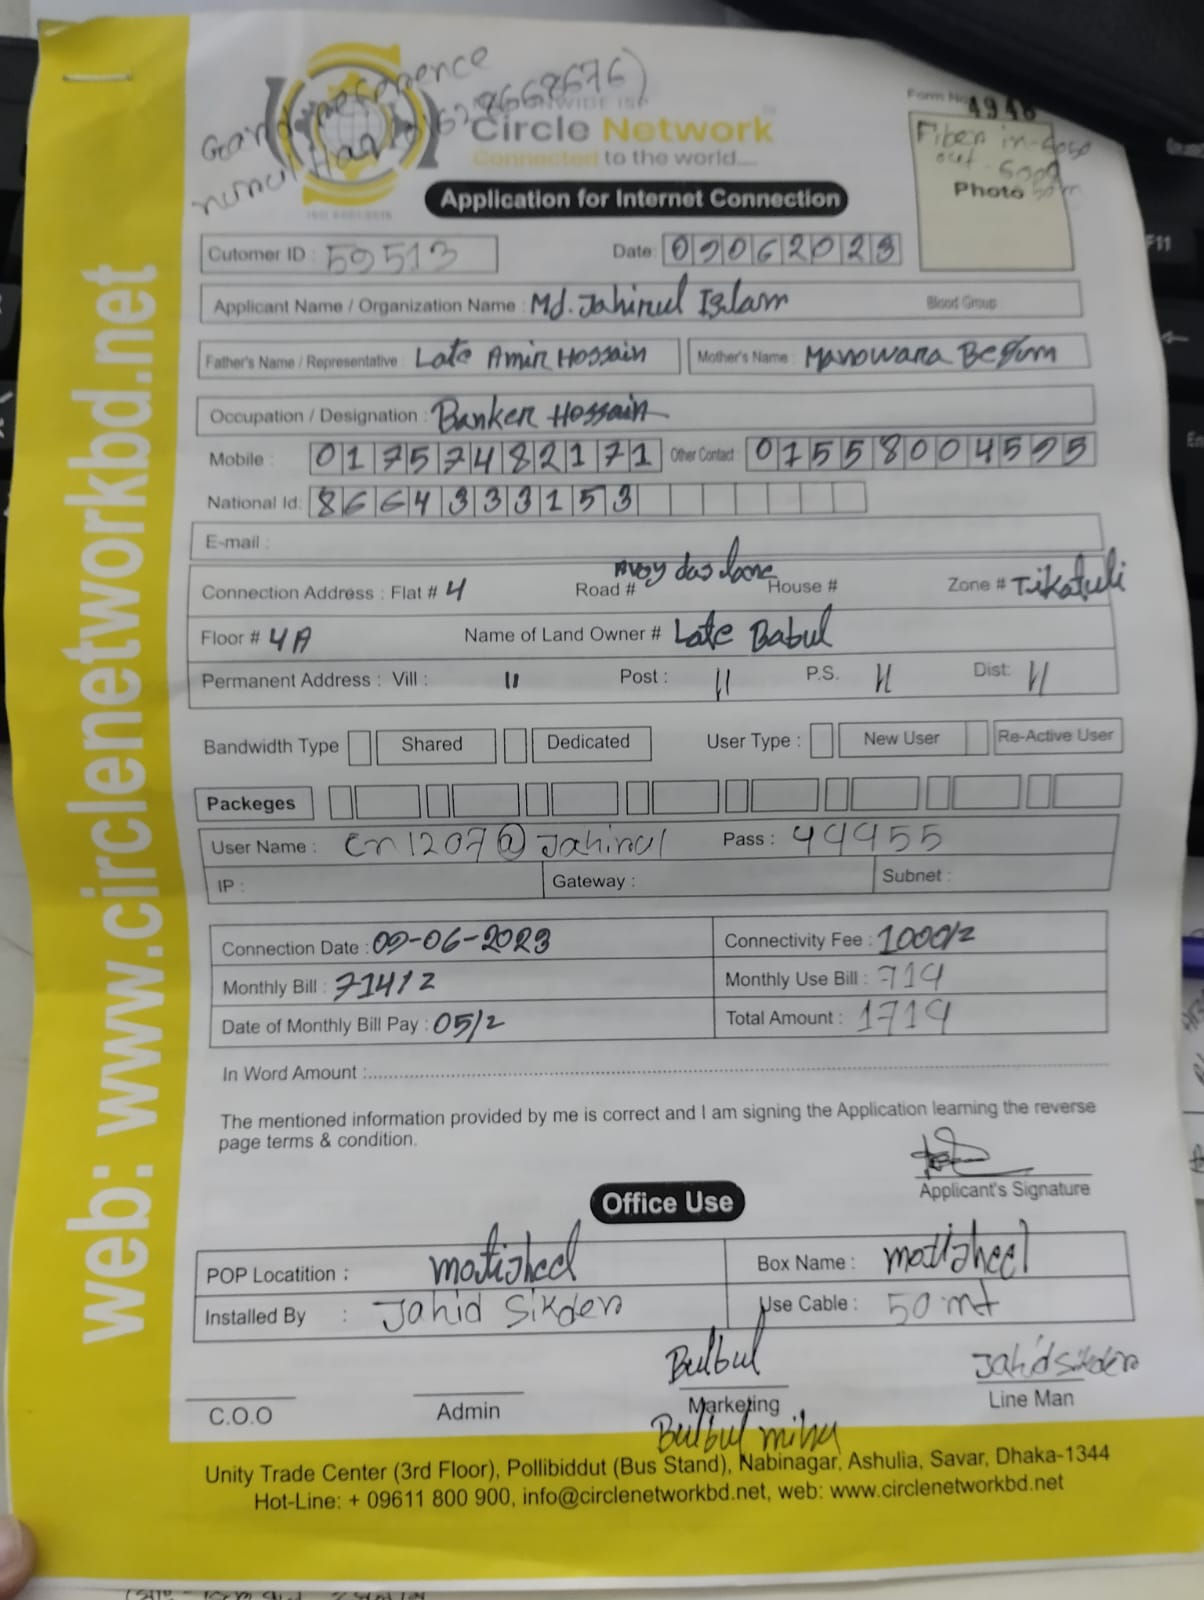 Form No. 4948
WIDE ISP
Circle Network
Connected to the world....
Fiber in-
out-
Photo
Application for Internet Connection
Cutomer ID : 59513
Date: 09062023
Applicant Name / Organization Name : Md. Jahirul Islam Blood Group
Father's Name / Representative : Late Amir Hossain Mother's Name : Manowara Begum
Occupation / Designation : Banker Hossain
Mobile : 01757482171 Other Contact : 01558004595
National Id: 8664333153
E-mail :
Connection Address : Flat # 4 Road # Avoy das lane House # Zone # Tikatuli
Floor # 4A Name of Land Owner # Late Babul
Permanent Address : Vill : " Post : " P.S. " Dist: "
Bandwidth Type Shared Dedicated User Type : New User Re-Active User
Packeges
User Name : cn1207@Jahirul Pass : 44455
IP : Gateway : Subnet :
Connection Date : 09-06-2023 Connectivity Fee : 1000/=
Monthly Bill : 714/= Monthly Use Bill : 714
Date of Monthly Bill Pay : 05/= Total Amount : 1714
In Word Amount :
The mentioned information provided by me is correct and I am signing the Application learning the reverse
page terms & condition.
Applicant's Signature
Office Use
POP Locatition : motijheel Box Name : motijheel
Installed By : Jahid Sikder Use Cable : 50 mt
Bulbul Jahid Sikder
C.O.O Admin Marketing Line Man
Bulbul
Unity Trade Center (3rd Floor), Pollibiddut (Bus Stand), Nabinagar, Ashulia, Savar, Dhaka-1344
Hot-Line: + 09611 800 900, info@circlenetworkbd.net, web: www.circlenetworkbd.net
web: www.circlenetworkbd.net